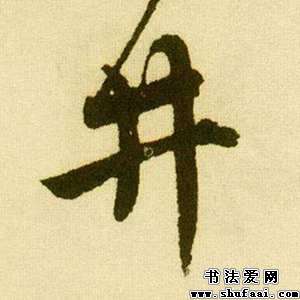 井
书法爱网
www.shufaai.com